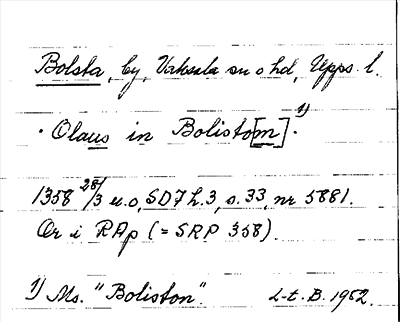 Bolsta, by, Vaksala sn o hd, Upps. l.
· Olaus in Bolisto[m]. 1)
1358 28/3 u.o, SD7 h.3, s. 33, nr 5881.
Or i RAp (= SRP 358)
1) Ms. "Boliston". L-t. B. 1952.